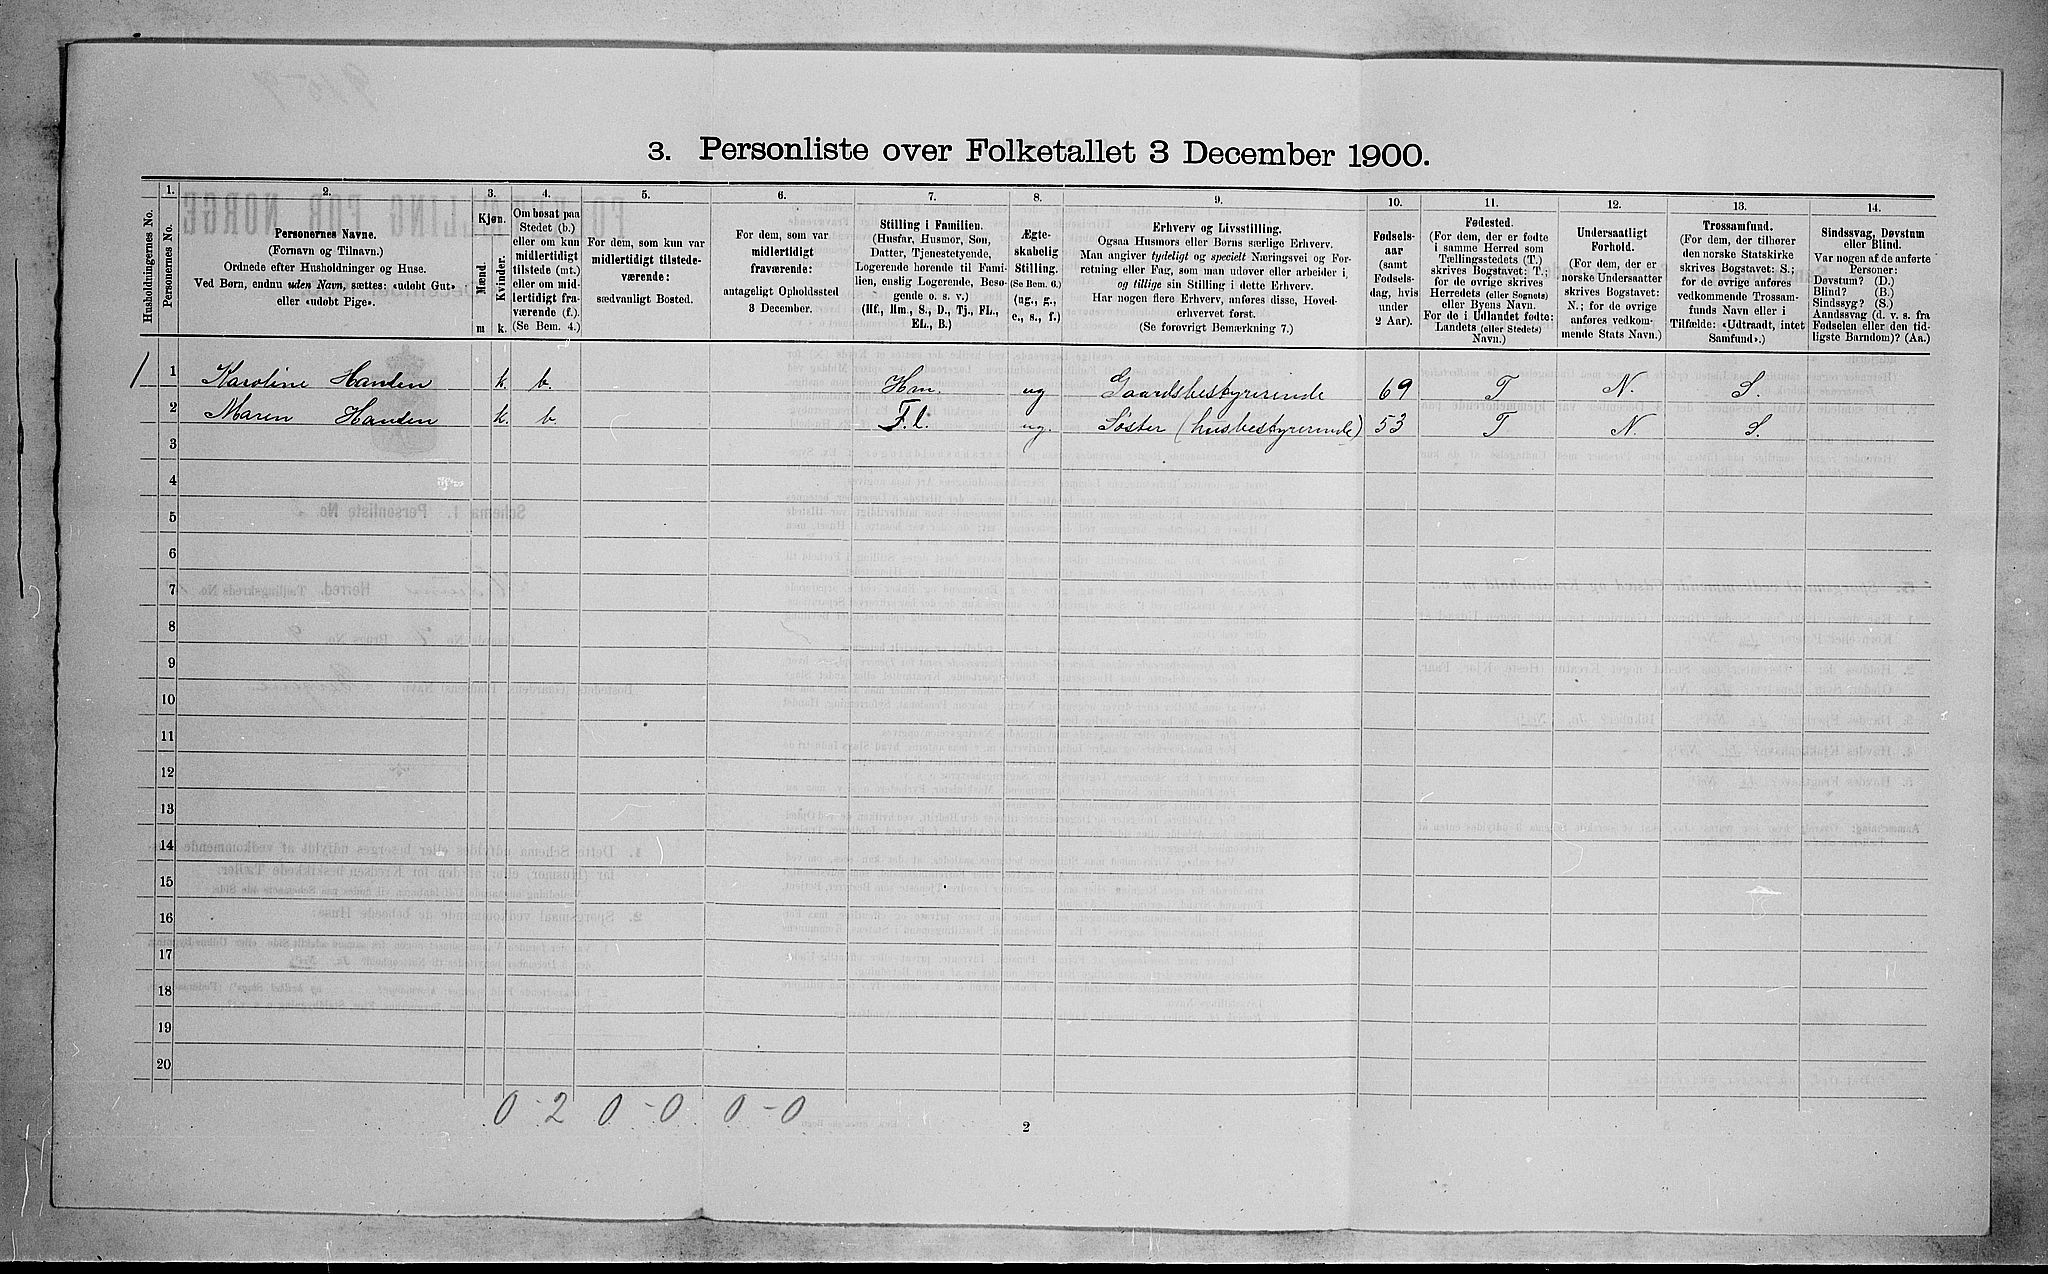 3. Personliste over Folketallet 3 December 1900.
Husholdningernes No.
1.
Personernes No.
2.
Personernes Navne.
(Fornavn og Tilnavn.)
Ordnede efter Husholdninger og Huse.
Ved Børn, endnu uden Navn, sættes: «udøbt Gut»
eller «udøbt Pige».
3.
Kjøn.
Mænd.
Kvinder.
m
k.
4.
Om bosat paa
Stedet (b.)
eller om kun
midlertidigt
tilstede (mt.)
eller om mid-
lertidigt fra-
værende (f.).
(Se Bem. 4.)
5.
For dem, som kun var
midlertidigt tilstede-
værende:
sædvanligt Bosted.
6.
For dem, som var
midlertidigt
fraværende:
antageligt Opholdssted
3 December.
7.
Stilling i Familien.
(Husfar, Husmor, Søn,
Datter, Tjenestetyende,
Logerende hørende til Fami-
lien, enslig Logerende, Besø-
gende o. s. v.)
(Hf., Hm., S., D., Tj., FL.,
EL., B.)
8.
Ægte-
skabelig
Stilling.
(Se Bem. 6.)
(ug., g.,
e., s., f.)
9.
Erhverv og Livsstilling.
Ogsaa Husmors eller Børns særlige Erhverv.
Man angiver tydeligt og specielt Næringsvei og For-
retning eller Fag, som man udøver eller arbeider i,
og tillige sin Stilling i dette Erhverv.
Har nogen flere Erhverv, anføres disse, Hoved-
erhvervet først.
(Se forøvrigt Bemærkning 7.)
10.
Fødsels-
aar
(samt
Fødsels-
dag, hvis
under
2 Aar).
11.
Fødested.
(For dem, der er fødte
i samme Herred som
Tællingsstedets (T.)
skrives Bogstavet: T.;
for de øvrige skrives
Herredets (eller Sognets)
eller Byens Navn.
For de i Udlandet fødte:
Landets (eller Stedets)
Navn.)
12.
Undersaatligt
Forhold.
(For dem, der er
norske Undersaatter
skrives Bogstavet:
N.; for de øvrige
anføres vedkom-
mende Stats Navn.)
13.
Trossamfund.
(For dem, der tilhører
den norske Statskirke
skrives Bogstavet: S.;
for de øvrige anføres
vedkommende Trossam-
funds Navn eller i
Tilfælde: «Udtraadt, intet
Samfund».)
14.
Sindssvag, Døvstum
eller Blind.
Var nogen af de anførte
Personer:
Døvstum? (D.)
Blind? (B.)
Sindssyg? (S.)
Aandssvag (d. v. s. fra
Fødselen eller den tid-
ligste Barndom)? (Aa.)
1 1 Karoline Hansen k. b. Hm. ug Gaardsbestyrerinde 69 T N. S.
2 Maren Hansen k. b. F.l. ug. Søster (husbestyrerinde) 53 T N. S.
3
4
5
6
7
8
9
10
11
12
13
14
15
16
17
18
19
20
0 - 2 0 - 0 0 - 0
2